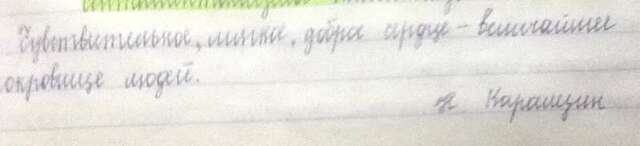 Чувствительное, мягкое, доброе сердце – величайшее
сокровище людей.
Карамзин